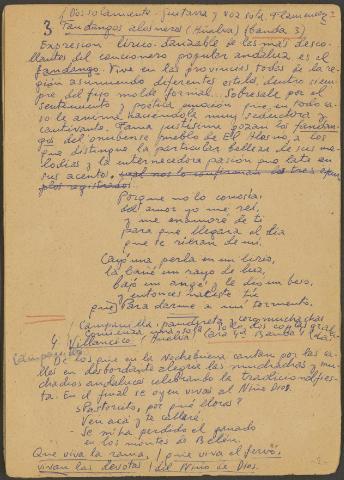 (Dos solamente, guitarra y voz sola, flamenco)
3 Fandangos alosneros (Huelva) (banda 3)
Expresión lírico-danzable de las más desco-
llantes del cancionero popular andaluz es el
fandango. Vive en las provincias todas de la re-
gión asumiendo diferentes estilos, dentro siem-
pre del fijo molde formal... Sobresale por el
sentimiento y poética emoción que, en todo ca-
so le anima haciéndole muy seductor y
cautivante. Fama justísima gozan los fandan-
gos del onubense pueblo de El Alosno, a los
que distingue la particular belleza de sus me-
lodías y la enternecedora pasión que late en
sus acentos.
Porque no lo conocía
del amor yo me reí,
y me enamoré de ti
para que llegara el día
que te rieran de mí.
Cayó una perla en un lirio,
la bañó un rayo de luz,
bajó un ángel y le dio un beso,
y entonces naciste tú
Para darme a mí tormento.
Campanilla, pandereta, coro muchachas
4. Villancico (Huelva) (Cara 4ª Banda 4)
De los que en la Nochebuena cantan por las ca-
lles en desbordante alegría las muchachas y mu-
chachos andaluces celebrando la tradicional fies-
ta. En el final se oyen vivas al Niño Dios.
Pastorcito, por qué lloras?
Ven acá y te callaré.
Se m'ha perdido el ganado
en los montes de Belén.
Que viva la rama, ! que viva el fervó,
vivan las devotas ! del Niño de Dios.